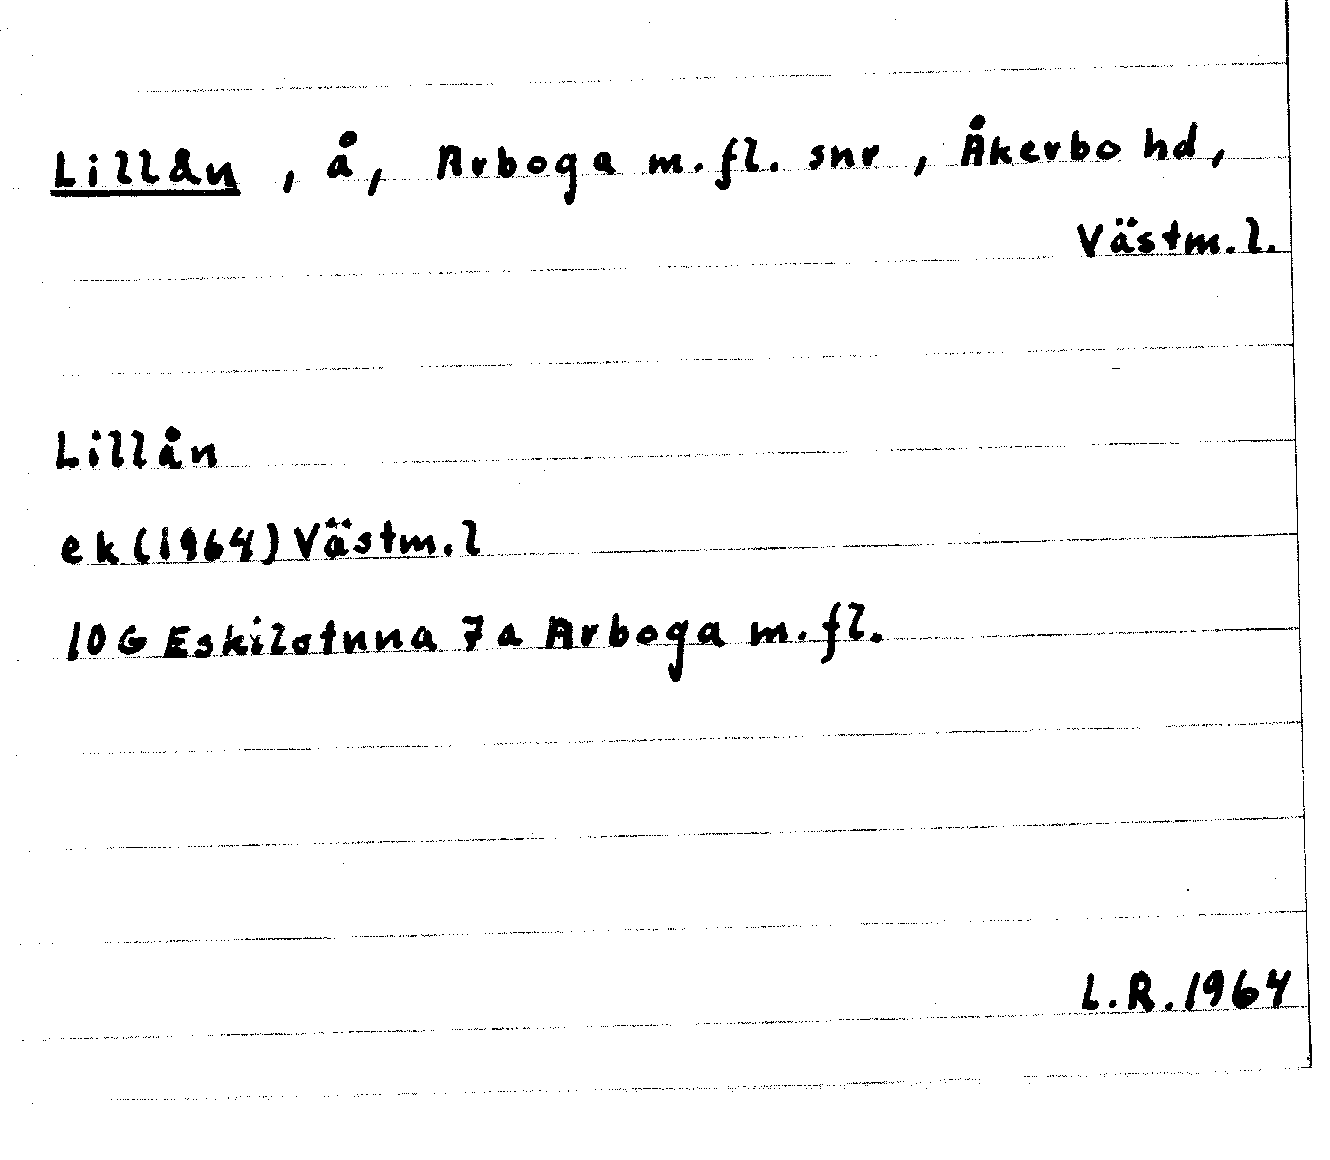 Lillån, å, Arboga m.fl. snr, Åkerbo hd,
Västm.l.
Lillån
ek (1964) Västm.l
10 G Eskilstuna 7a Arboga m.fl.
L.R. 1964